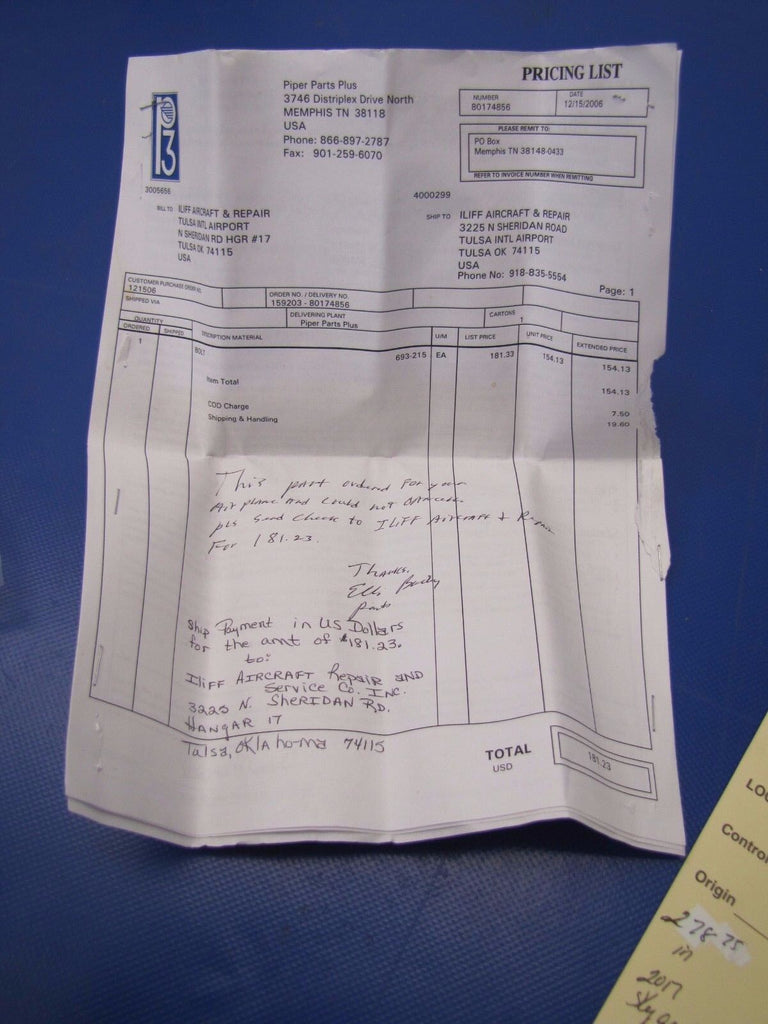 PRICING LIST
Piper Parts Plus
3746 Distriplex Drive North
MEMPHIS TN 38118
USA
Phone: 866-897-2787
Fax: 901-259-6070
NUMBER
80174856
DATE
12/15/2006
PLEASE REMIT TO:
PO Box
Memphis TN 38148-0433
REFER TO INVOICE NUMBER WHEN REMITTING
P3
3005656
4000299
BILL TO
ILIFF AIRCRAFT & REPAIR
TULSA INTL AIRPORT
N SHERIDAN RD HGR #17
TULSA OK 74115
USA
SHIP TO
ILIFF AIRCRAFT & REPAIR
3225 N SHERIDAN ROAD
TULSA INTL AIRPORT
TULSA OK 74115
USA
Phone No: 918-835-5554
Page: 1
CUSTOMER PURCHASE ORDER NO.
121506
ORDER NO. / DELIVERY NO.
159203 - 80174856
SHIPPED VIA
DELIVERING PLANT
Piper Parts Plus
CARTONS
1
QUANTITY
ORDERED SHIPPED DESCRIPTION MATERIAL U/M LIST PRICE UNIT PRICE EXTENDED PRICE
1 BOLT 693-215 EA 181.33 154.13 154.13
Item Total 154.13
COD Charge 7.50
Shipping & Handling 19.60
This part ordered For your
Airplane and could not cancel.
pls send check to ILIFF Aircraft & Repair
For 181.23.
Thanks.
parts
Ship Payment in US Dollars
for the amt of $181.23.
to:
ILIFF AIRCRAFT Repair AND
Service Co. INC.
3225 N. SHERIDAN RD.
HANGAR 17
Tulsa, OKLAhoma 74115
TOTAL
USD
181.23
LO
Contro
Origin
27875
in
2017